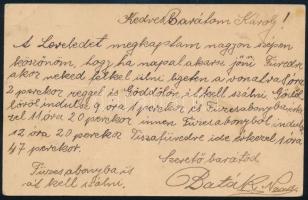 Kedves Barátom Károly!
A Leveledet megkaptam nagyon szépen
köszönöm, hogy ha nappal akarsz jönni Füredre
akor neked fel kell ülni Egeten a vonalra 1 óra
2 perckor reggel és Gödöllőn, át kell szálni Gödöl
löről indulsz 9 óra 1 perckor és Füzesabonyba érkezel
11 óra 20 perckor innen Füzesabonyból indulsz
12 óra 20 perckor Tiszafüredre ide érkezel 1 óra
47 perckor.
Füzesabonyba is
át kell szálni,
Szerető barátod